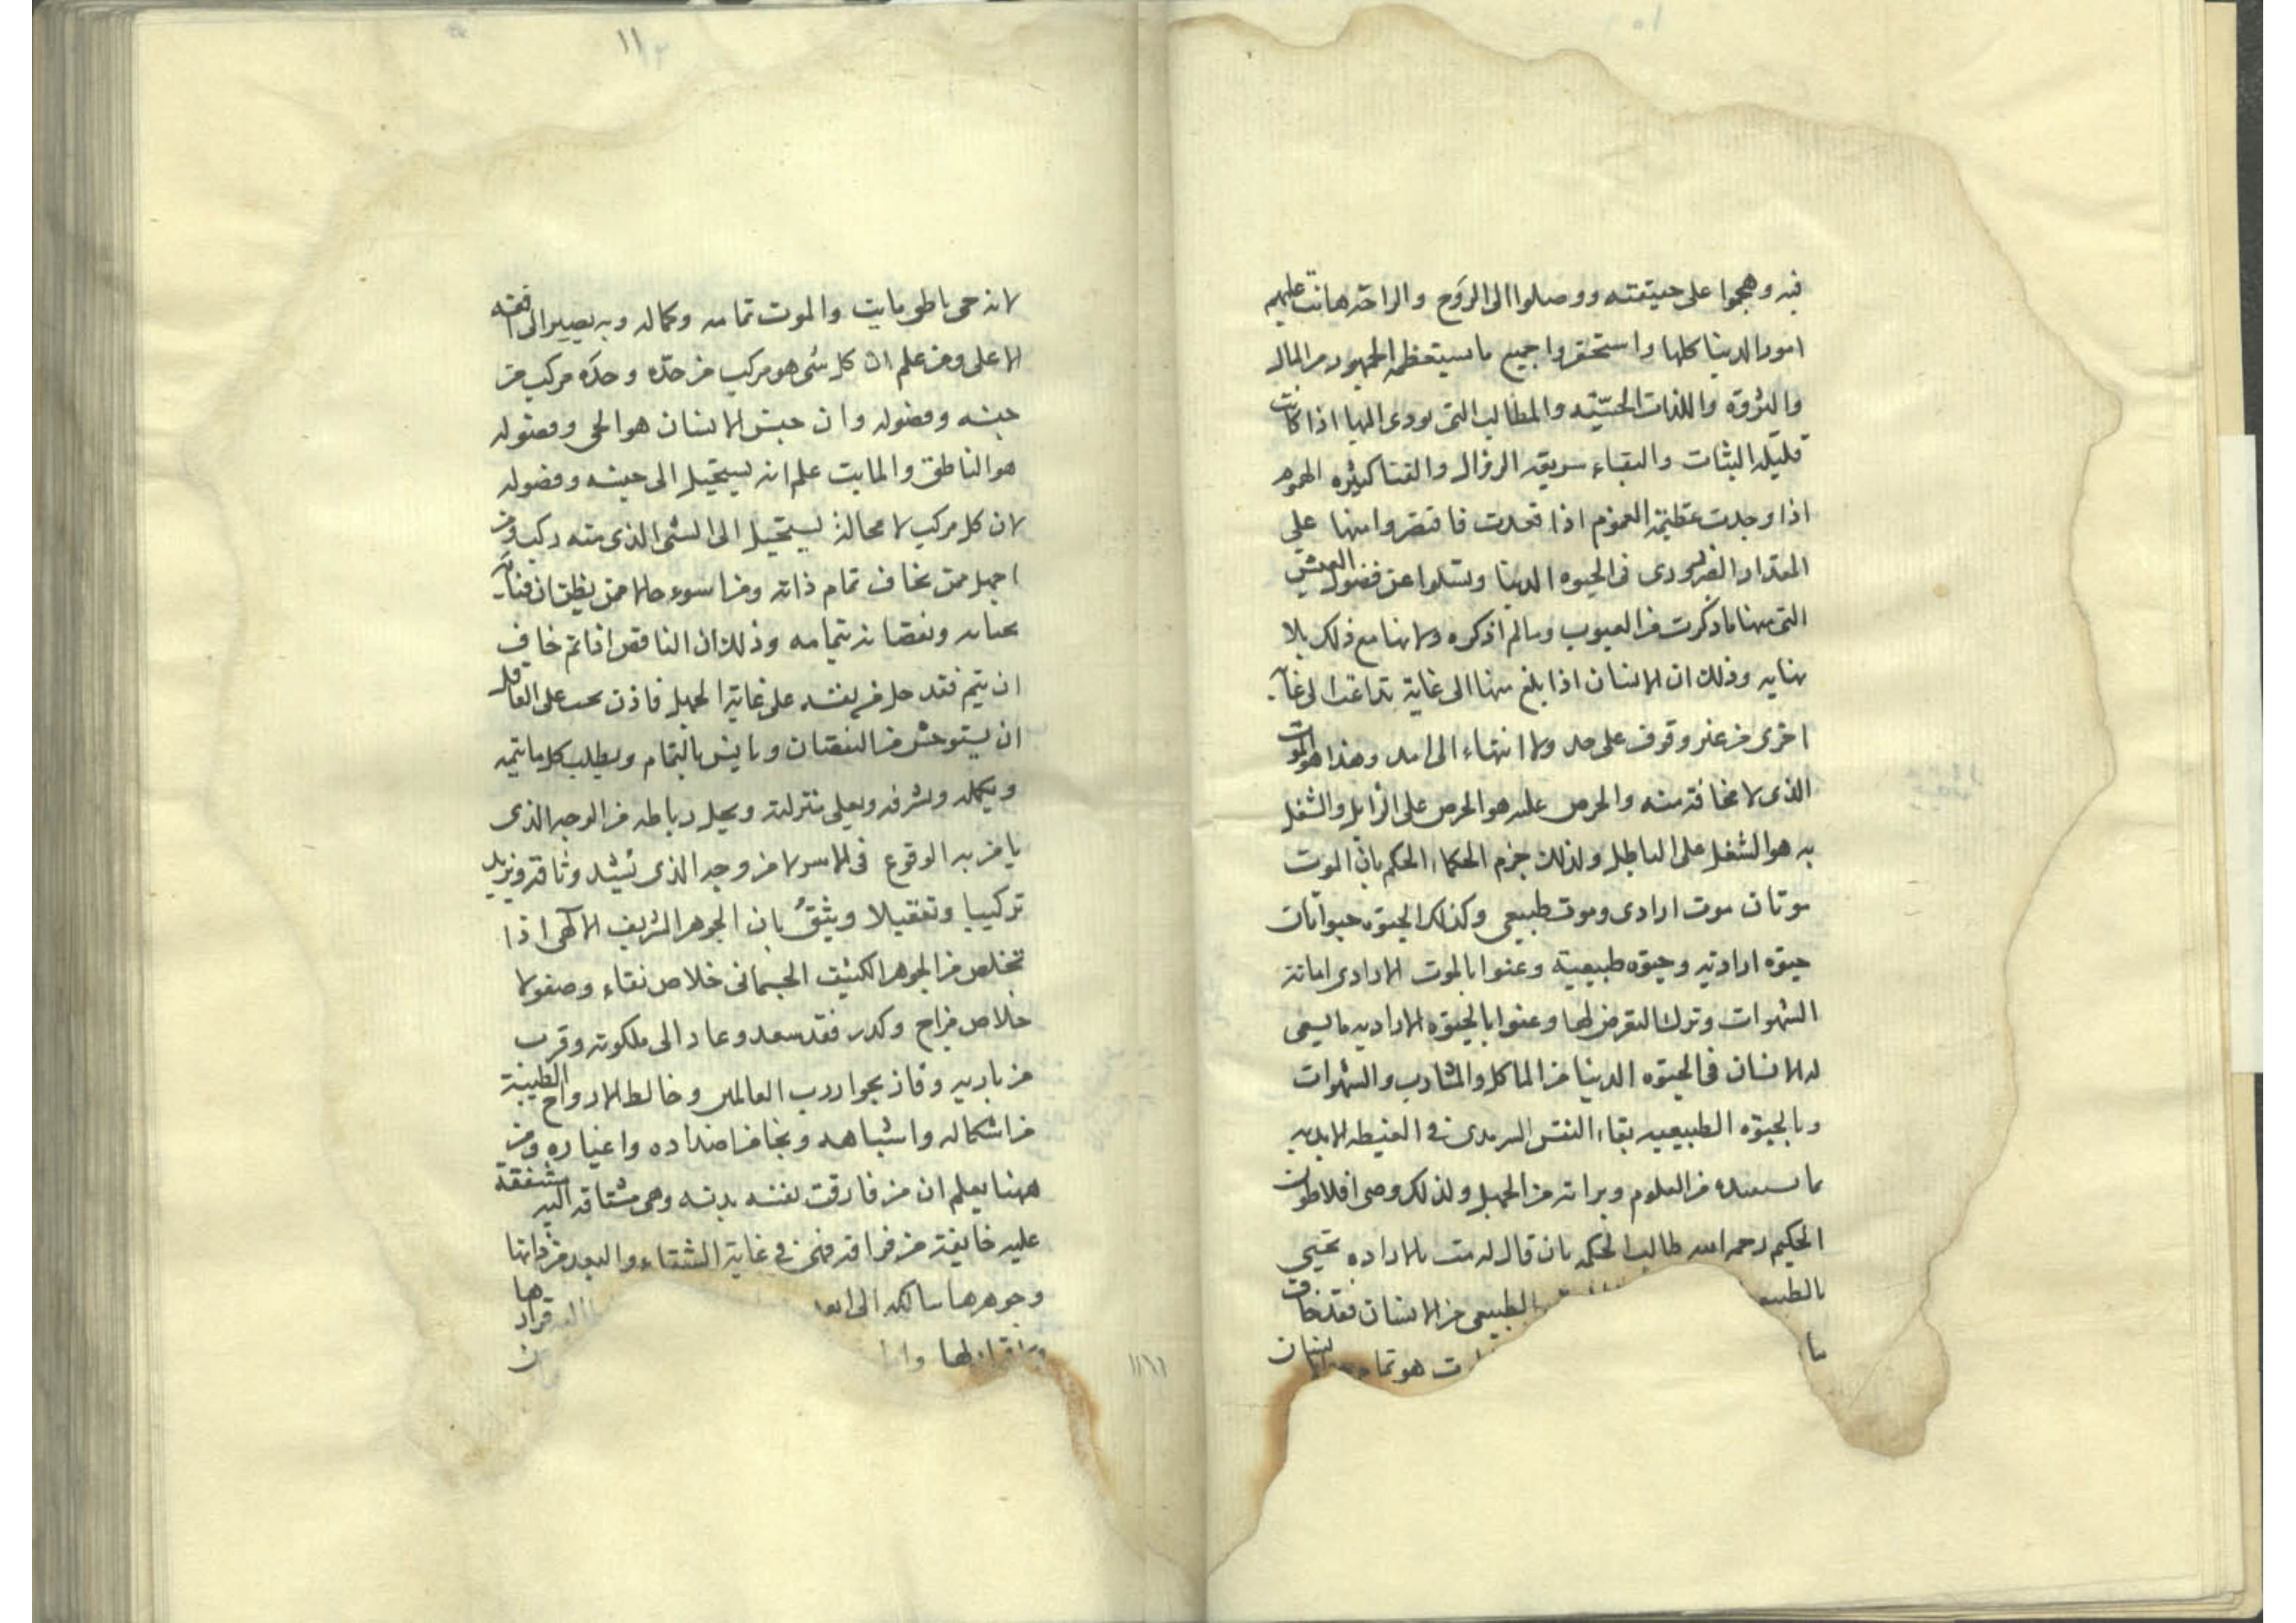 فيه وهجموا على حقيقته ووصلوا الى الرَوح والراحة هانت عليهم
امور الدنيا كلها واستحقروا جميع ما يستعظمه الجمهور من المال
والثروة واللذات الحسّيّة والمطالب التى تودى اليها اذا كانت
قليلة الثبات والبقاء سريعة الزوال والفنا كثيره الهموم
اذا وجدت عظيمة الغموم اذا فقدت فاقتصروا منها على
المقدار الضرورى فى الحيوه الدنيا وتسلوا عن فضول العيش
التى فيها ما ذكرت من العيوب وما لم اذكره ولانها مع ذلك بلا
نهايه وذلك ان الانسان اذا بلغ منها الى غاية تداعت الى غاية
اخرى من غير وقوف على حد ولا انتهاء الى امد وهذا هو الموت
الذى لا مخافة منه والحرص عليه هو الحرص على الزايل والشغل
به هو الشغل على الباطل ولذلك جزم الحكماء الحكم بان الموت
موتان موت ارادى وموت طبيعى وكذلك الحيوه حيواتان
حيوه اراديه وحيوه طبيعية وعنوا بالموت الارادى اماتة
الشهوات وترك التعرض لها وعنوا بالحيوه الاراديه ما يسعى
له الانسان فى الحيوه الدنيا من الماكل والمشارب والشهوات
وبالحيوه الطبيعيه بقاء النفس السرمدى فى الغبطه الابديه
بما تستفيده من العلوم وبراته من الجهل ولذلك وصى افلاطون
الحكيم رحمه الله طالب الحكمه بان قال له مت بالاراده تحيى
بالطبيعه الطبيعى من الانسان فقد خاف
ما هو تمام الانسان
لانه حى ناطق مايت والموت تمامه وكماله وبه يصير الى افقه
الاعلى ومن علم ان كل شى هو مركب من حدّه وحدّه مركب من
جنسه وفصوله وان جنس الانسان هو الحى وفصوله
هو الناطق والمايت علم انه يستحيل الى جنسه وفصوله
لان كل مركب لا محالة يستحيل الى الشى الذى منه ركب ومن
اجهل ممن يخاف تمام ذاته ومن اسوء حالا ممن يظن ان فناءه
بحياته ونقصانه بتمامه وذلك ان الناقص اذا تم خاف
ان يتم فقد جل من نفسه على غاية الجهل فاذن يجب على العاقل
ان يستوحش من النقصان ويانس بالتمام ويطلب كل ما يتمه
ويكمله ويشرفه ويعلى منزلته ويحل رباطه من الوجه الذى
يامن به الوقوع فى الاسر لا من وجه الذى يشد وثاقه ويزيد
تركيبا وتعقيلا ويثق بان الجوهر الشريف الالهى اذا
تخلص من الجوهر الكثيف الجسمانى خلاص نقاء وصفو لا
خلاص مزاج وكدر فقد سعد وعاد الى ملكوته وقرب
من باريه وفاز بجوار رب العالمين وخالط الارواح الطيبة
من اشكاله واشباهه ونجا من اضداده واغياره ومن
ههنا يعلم ان من فارقت نفسه بدنه وهى مشتاقه اليه مشفقة
عليه خايفة من فراقه فهى فى غاية الشقاء والبعد من ذاتها
وجوهرها سالكه الى ابعد قرارها
لها